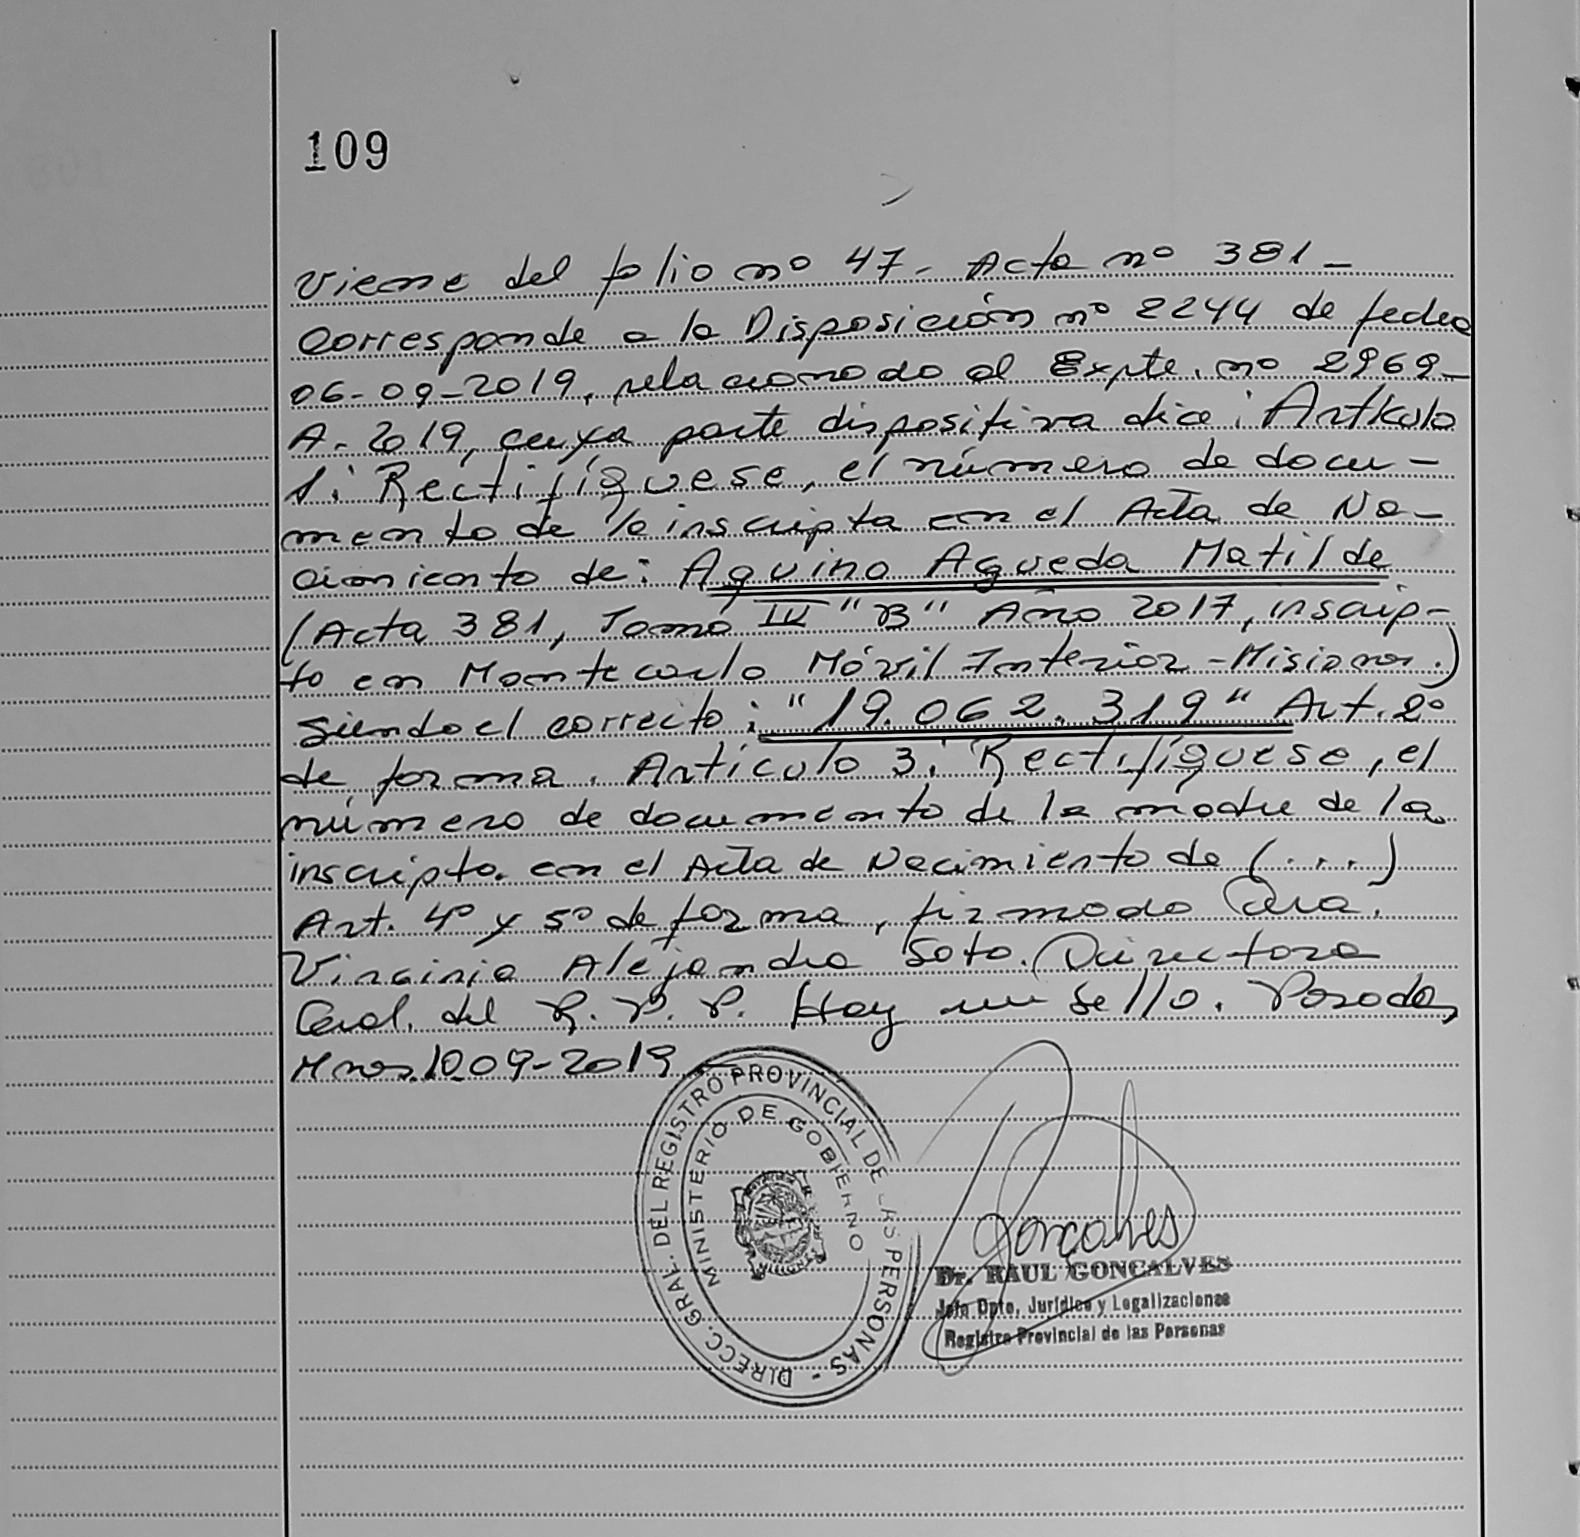 109
Viene del folio nº 47- Acta nº 381-
Corresponde a la Disposición nº 2244 de fecha
06-09-2019, relacionado al Expte. nº 2969-
A-2019, cuya parte dispositiva dice: Artículo
1: Rectifíquese, el número de docu-
mento de la inscripta en el Acta de Na-
cimiento de: Aquino Agueda Matilde
(Acta 381, Tomo IV "B" Año 2017, inscrip-
to en Montecarlo Móvil Interior - Misiones.)
siendo el correcto: "19.062.319" Art. 2º
de forma. Artículo 3: Rectifíquese, el
número de documento de la madre de la
inscripta. en el Acta de Nacimiento de (...)
Art. 4º y 5º de forma, firmado
Virginia Alejandra Soto. Directora
Gral. del R. P. P. Hay un sello. Posadas,
Mnes. 10-09-2019
DIRECC. GRAL. DEL REGISTRO PROVINCIAL DE LAS PERSONAS -
MINISTERIO DE GOBIERNO
Goncalves
Dr. RAUL GONCALVES
Jefe Dpto. Jurídico y Legalizaciones
Registro Provincial de las Personas